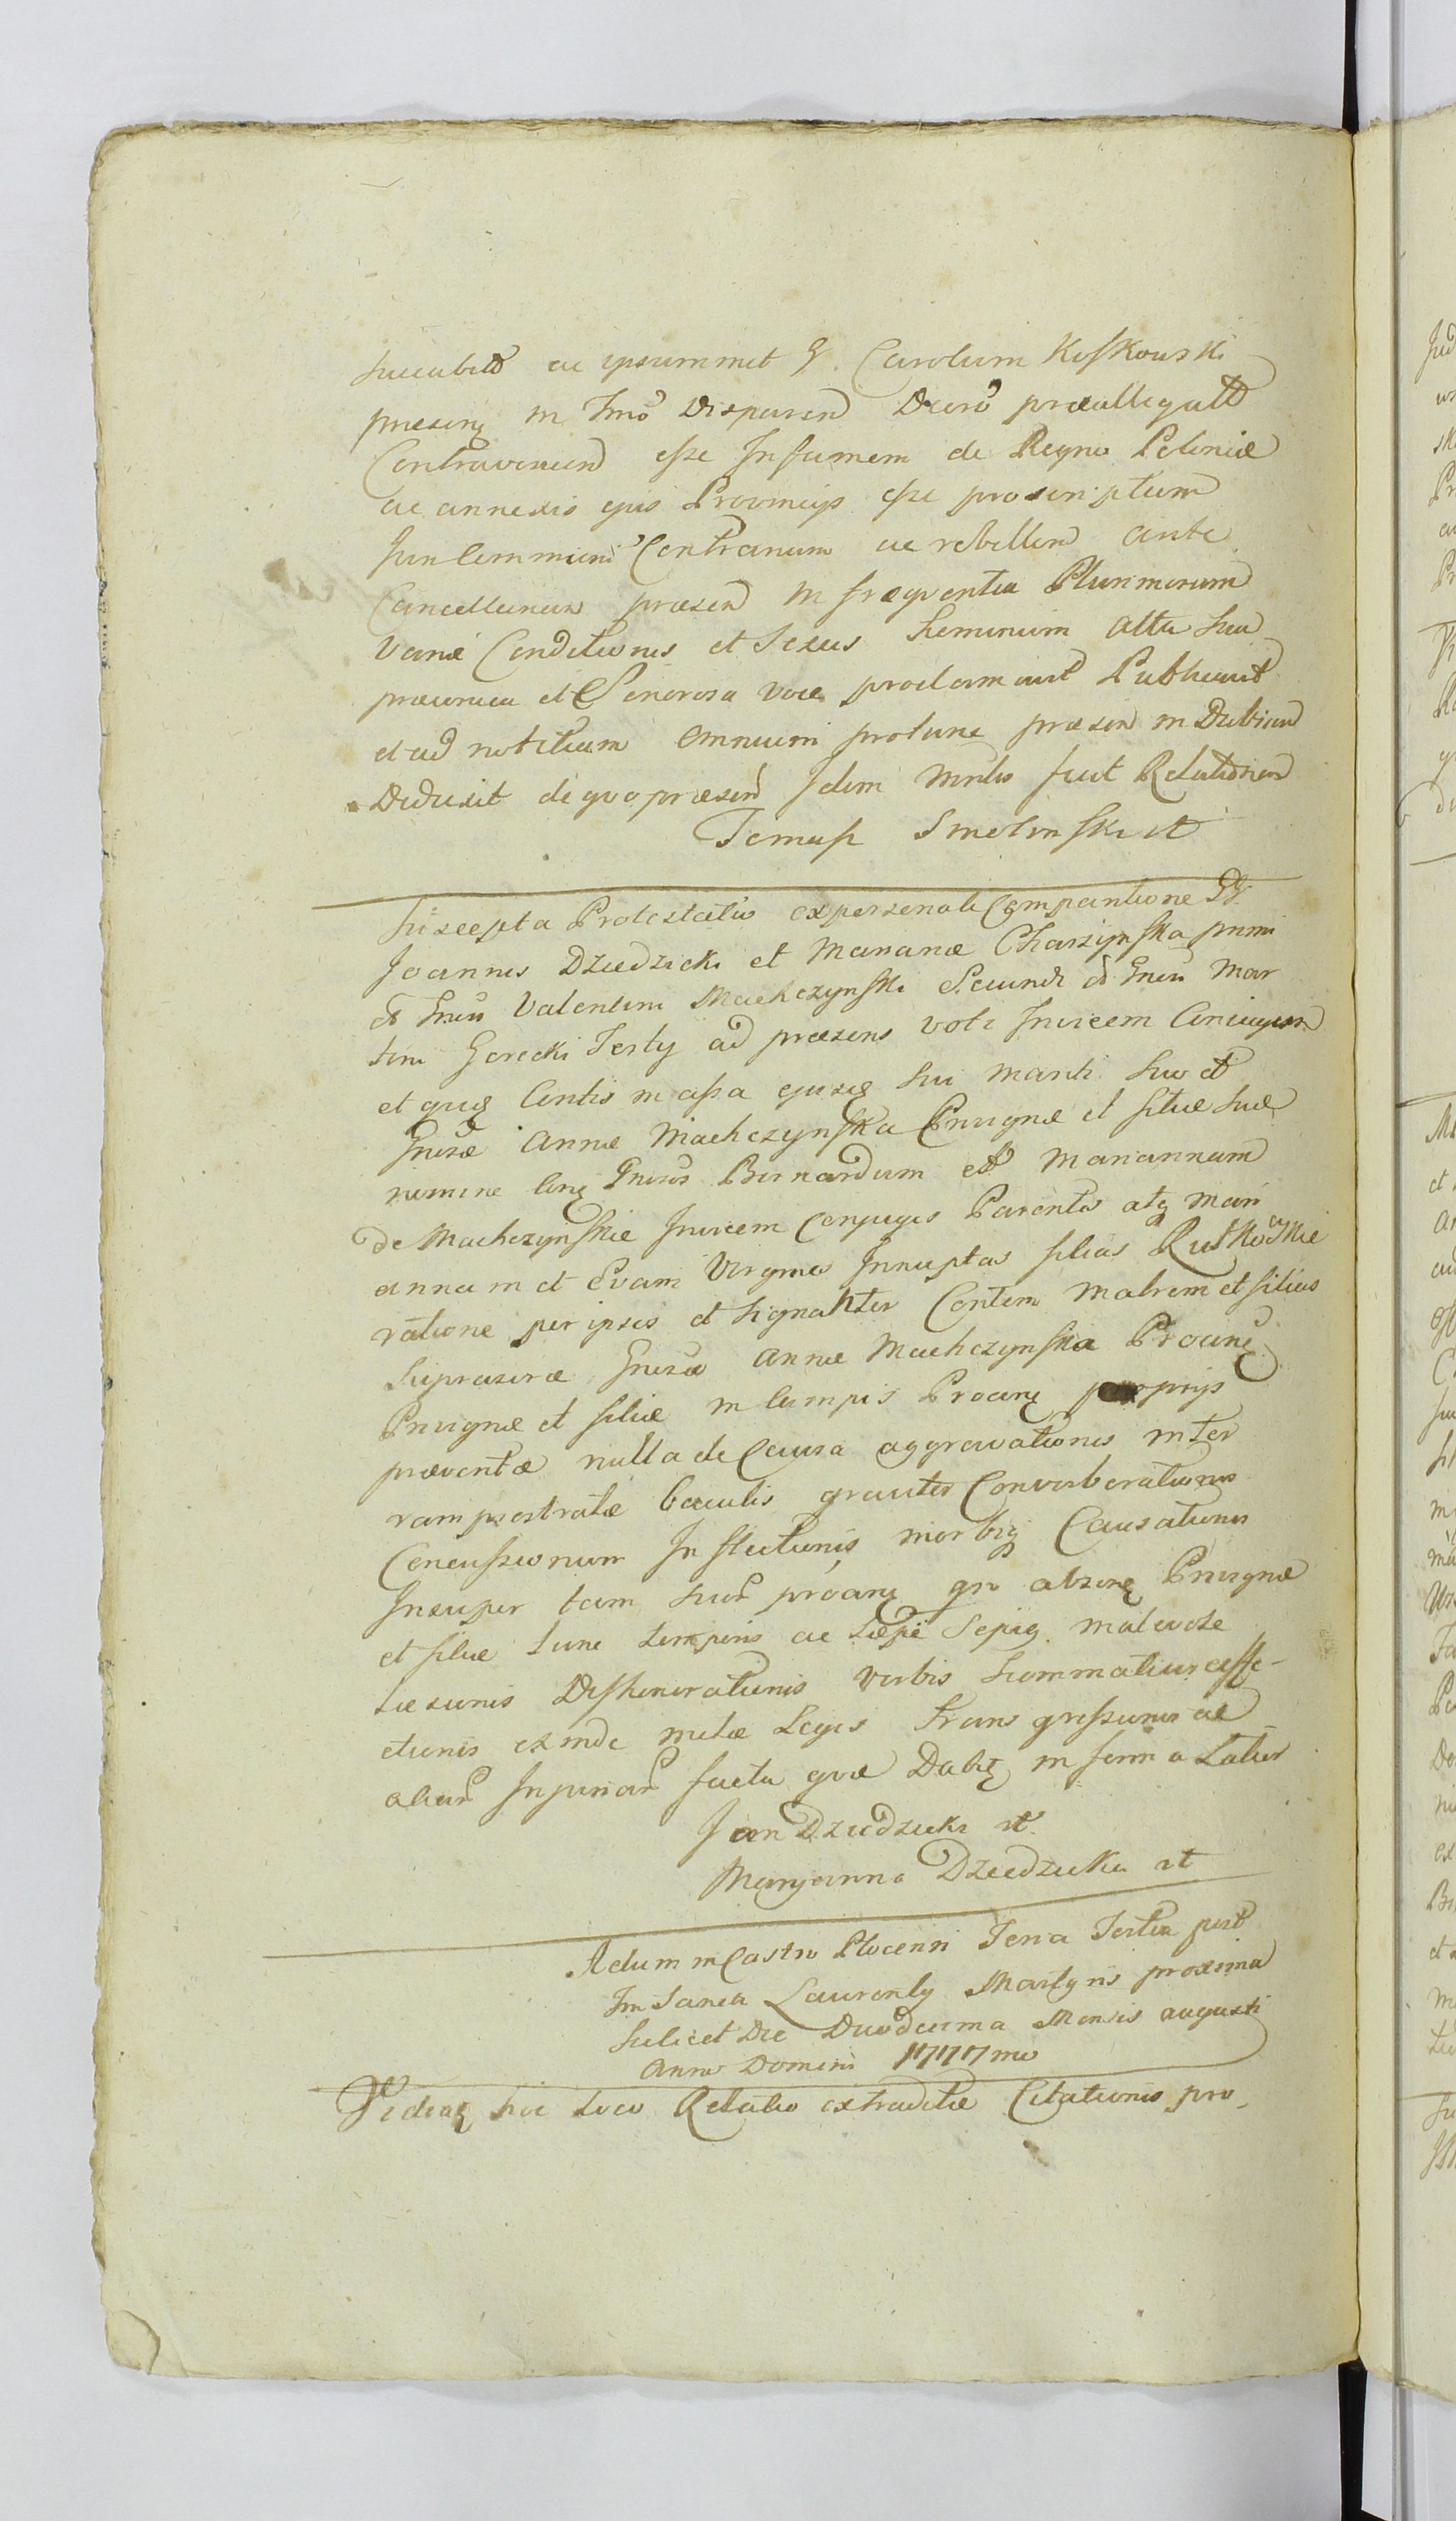 succubitt ac ipsummet G. Carolum Koskowski
presing in Tmo Disparen Decro præallegatt
Contravenien esse Infamem de Regno Poloniæ
ac annexis ejus Provincijs esse proscriptum
Juri Communi Contrarium ac rebellem ante
Cancellariam præsen in frequentia Plurimorum
variæ Conditionis et Sexus hominum alta sua
præconica et Sonorosa voce proclamavit Publicavit
et ad notitiam omnium protunc præsen indubiam
Deduxit de quo præsen Idem Mnlis fecit Relationem
Tomasz Smolinski mp
Suscepta Protestatio ex personali Comparitione GG
Joannis Dziedzicki et Marianæ Charzynska primi
et Gnsi Valentini Machczynski Secundi et Gnsi Mar
tini Gorecki Tertij ad præsens voti Invicem Coniugum
et quidem Contis in assa ejusdem sui mariti suo et
Gnsæ Annæ Machczynska Privignæ et filiæ suæ
nomine Cong Gnsos Bernardum et Mariannam
de Machczynskie Invicem Conjuges Parentes atq Mari
annam et Evam Virgines Innuptas filias Rutkowskie
ratione per ipsos et signanter Contem Matrem et filias
suprascræ Gnsæ Annæ Machczynska Proang
Privignæ et filiæ in Campis Proang proprijs
præventæ nulla de Causa aggravationis in ter
ram prostratæ baculis graviter Converberationis
Concussionum Inflictionis morbiq Causationis
Insuper tam suor proang qm absing Privignæ
et filiæ tunc temporis ac sæpe Sepiq malevole
læsionis Dishonorationis verbis Commatiur affe-
ctionis exinde metæ Legis Transgressionis ac
aliar Injuriar facta quæ Dabitg in forma Latior
Jan Dziedzicki mp
Maryanna Dziedzicka mp
Actum in Castro Plocensi Feria Tertia post
Fm Sancti Laurentij Martyris proxima
scilicet Die Duodecima Mensis augusti
Anno Domini 1777mo
Videatg hoc loco Relatio extraditæ Citationis pro